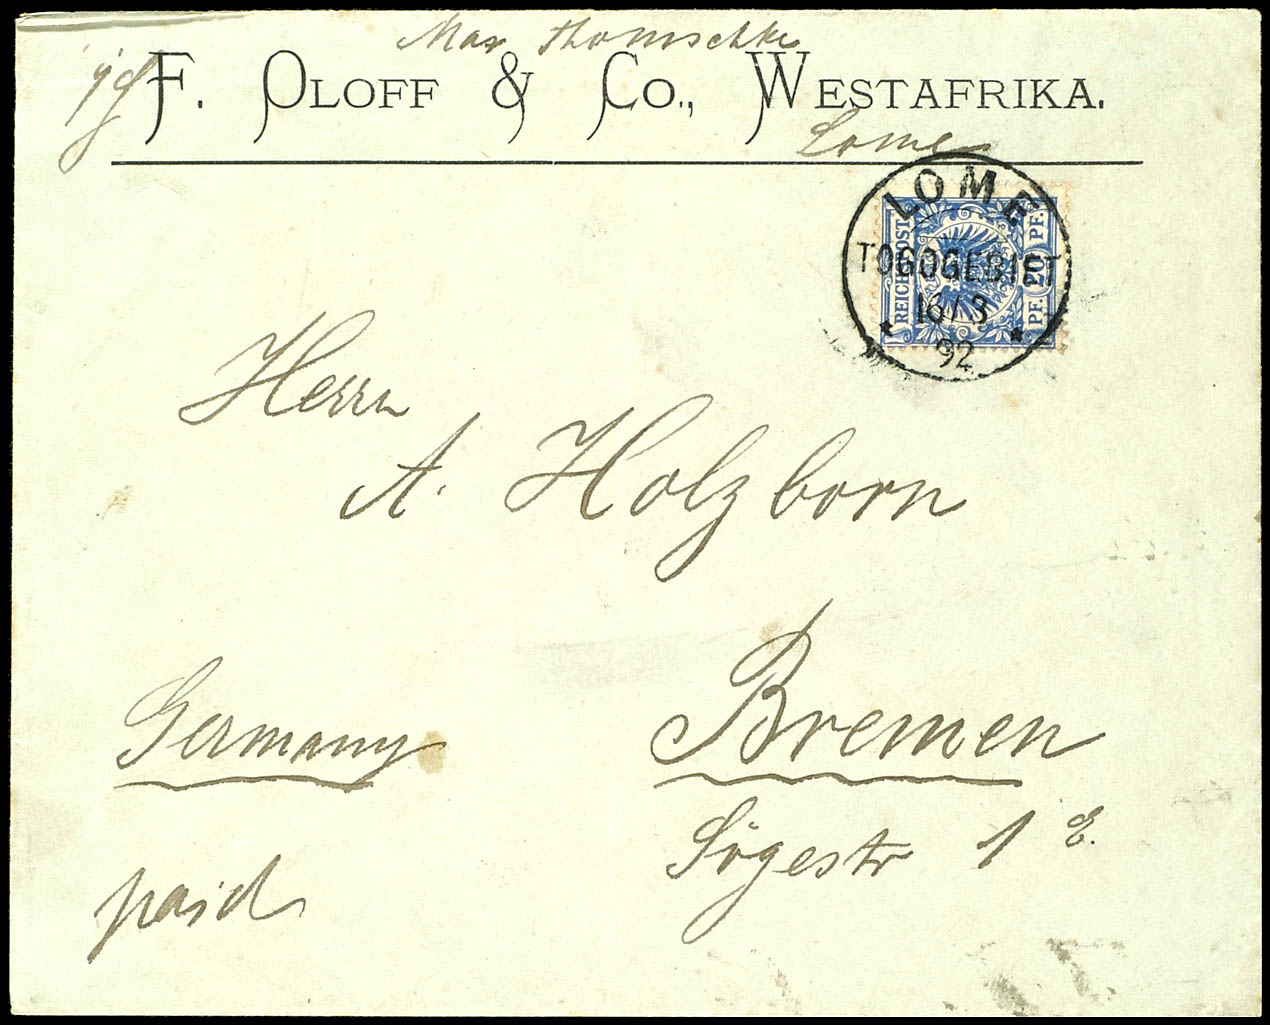 Max Thomschke
F. OLOFF & CO., WESTAFRIKA.
Lome
LOME
TOGOGEBIET
16/3
92
REICHSPOST
20
PF. PF.
Herrn
A. Holzborn
Germany
Bremen
Sögestr 1 E.
paid